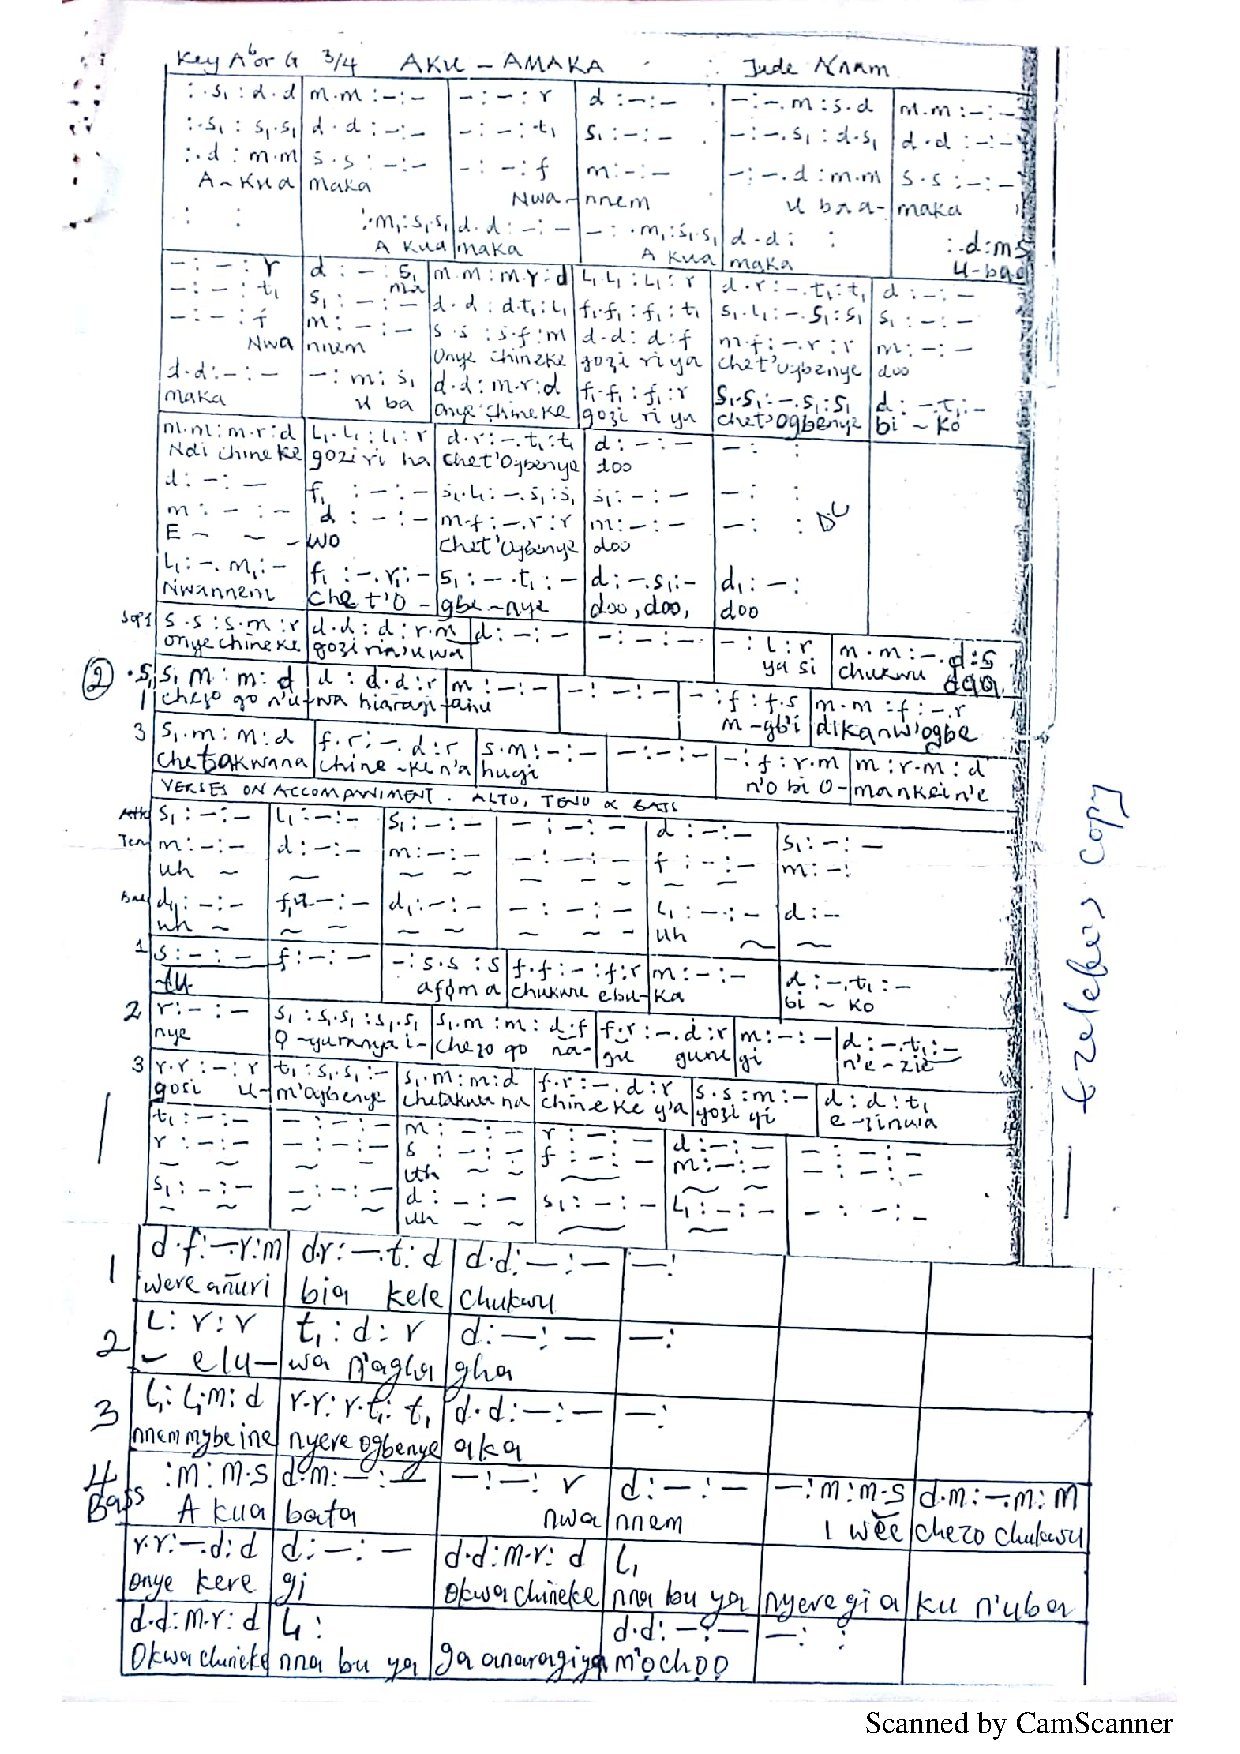 Key Ab or G 3/4 AKU - AMAKA Jude Nnam
:.s₁:d.d | m.m:-:- | -:-:r | d:-:- | -:-.m:s.d | m.m:-:-
:.s₁:s₁.s₁ | d.d:-:- | -:-:t₁ | s₁:-:- | -:-.s₁:d.s₁ | d.d:-:-
:.d:m.m | s.s:-:- | -:-:f | m:-:- | -:-.d:m.m | s.s:-:-
A-Kua | maka | Nwa- | nnem | u ba a- | maka
: : | :.m₁:s₁.s₁ | d.d:-:- | -:.m₁:s₁.s₁ | d.d: : | :.d:m.s
A Kua | maka | A Kua | maka | U-baa
-:-:r | d:-:s₁ | m.m:m.r:d | l₁.l₁:l₁:r | d.r:-.t₁:t₁ | d:-:-
ma
-:-:t₁ | s₁:-:- | d.d:d.t₁:l₁ | f₁.f₁:f₁:t₁ | s₁.l₁:-.s₁:s₁ | s₁:-:-
-:-:f | m:-:- | s.s:s.f:m | d.d:d:f | m.f:-.r:r | m:-:-
Nwa | nnem | Onye chineke | gozi ri ya | chet'ogbenye | doo
d.d:-:- | -:m:s₁ | d.d:m.r:d | f₁.f₁:f₁:r | s₁.s₁:-.s₁:s₁ | d:-.t₁:-
maka | u ba | onye chineke | gozi ri ya | chet'ogbenye | bi ~ ko
m.m:m.r:d | l₁.l₁:l₁:r | d.r:-.t₁:t₁ | d:-:- | -: :
Ndi chineke | goziri ha | chet'ogbenye | doo
d:-:- | f₁:-:- | s₁.l₁:-.s₁:s₁ | s₁:-:- | -: :
m:-:- | d:-:- | m.f:-.r:r | m:-:- | -: : D.C
E ~ ~ - | wo | chet'ogbenye | doo
l₁:-.m₁:- | f₁:-.r₁:- | s₁:-.t₁:- | d:-.s₁:- | d₁:-:
Nwannem | che t'o - | gbe-nye | doo, doo, | doo
Sop 1 s.s:s.m:r | d.d:d:r.m | d:-:- | -:-:- | -:l:r | m.m:-.d:s
onye chineke | gozi rin'uwa | ya si | chukwu daa
② .s₁ | s₁.m:m:d | d:d.d:r | m:-:- | -:-:- | -:f:f.s | m.m:f:-.r
chezo go n'u-wa | m-gb'i | dikanw'ogbe
3 s₁.m:m:d | f.r:-.d:r | s.m:-:- | -:-:- | -:f:r.m | m:r.m:d
chetakwana | chine-ke n'a | hugi | n'o bi o- | mankein'e
VERSES ON ACCOMPANIMENT. ALTO, TENO & BASS
Alto s₁:-:- | l₁:-:- | s₁:-:- | -:-:- | d:-:- | s₁:-:-
Ten m:-:- | d:-:- | m:-:- | -:-:- | f:-:- | m:-:
uh ~ ~ ~ ~ ~ ~
Bas d₁:-:- | f₁:-:- | d₁:-:- | -:-:- | l₁:-:- | d:-
uh ~ ~ ~ ~ ~ ~ ~ ~ | uh ~ | ~
1 s:-:- | f:-:- | -:s.s:s | f.f:-:f:r | m:-:- | d:-.t₁:-
afoma | chukwu ebu- | ka | bi ~ ko
2 r:-:- | s₁:s₁.s₁:s₁.s₁ | s₁.m:m:d.f | f.r:-.d:r | m:-:- | d:-.t₁:-
nye | O-yumnya i- | chezo go na- | gu gunu | gi | n'e-zie
3 r.r:-:r | t₁:s₁.s₁:- | s₁.m:m:d | f.r:-.d:r | s.s:m:- | d:d:t₁
gosi u- | m'ogbenye | chetakwa na | chineke y'a | gozi gi | e-zinwa
t₁:-:- | -:-:- | m:-:- | r:-:- | d:-:- | -:-:-
r:-:- | -:-:- | s:-:- | f:-:- | m:-:- | -:-:-
~ ~ ~ ~ | uh ~ ~
s₁:-:- | -:-:- | d:-:- | s₁:-:- | l₁:-:- | -:-:-
~ ~ ~ ~ | uh ~ ~
1 d.f:-r:m | dr:-.t:d | d.d:-:- | -:
were añuri | bia kele | chukwu
2 l:r:r | t₁:d:r | d:-:- | -:
- elu- | wa n'agha | gha
3 l₁:l₁.m:d | r.r:r.t₁:t₁ | d.d:-:- | -:
nnem mgbe ine | nyere ogbenye | aka
4 :m:m.s | d.m:-:- | -:-:r | d:-:- | -:m:m.s | d.m:-.m:m
Bass A kua | bata | nwa | nnem | I wee | chezo chukwu
r.r:-.d:d | d:-:- | d.d:m.r:d | l₁
onye kere | gi | Okwa chineke | nna bu ya | nyere gi a | ku n'uba
d.d:m.r:d | l₁: | d.d:-:- | -: :
Okwa chineke | nna bu ya | ga anaragi ya | m'ọchọọ
Ezelebe's copy
Scanned by CamScanner